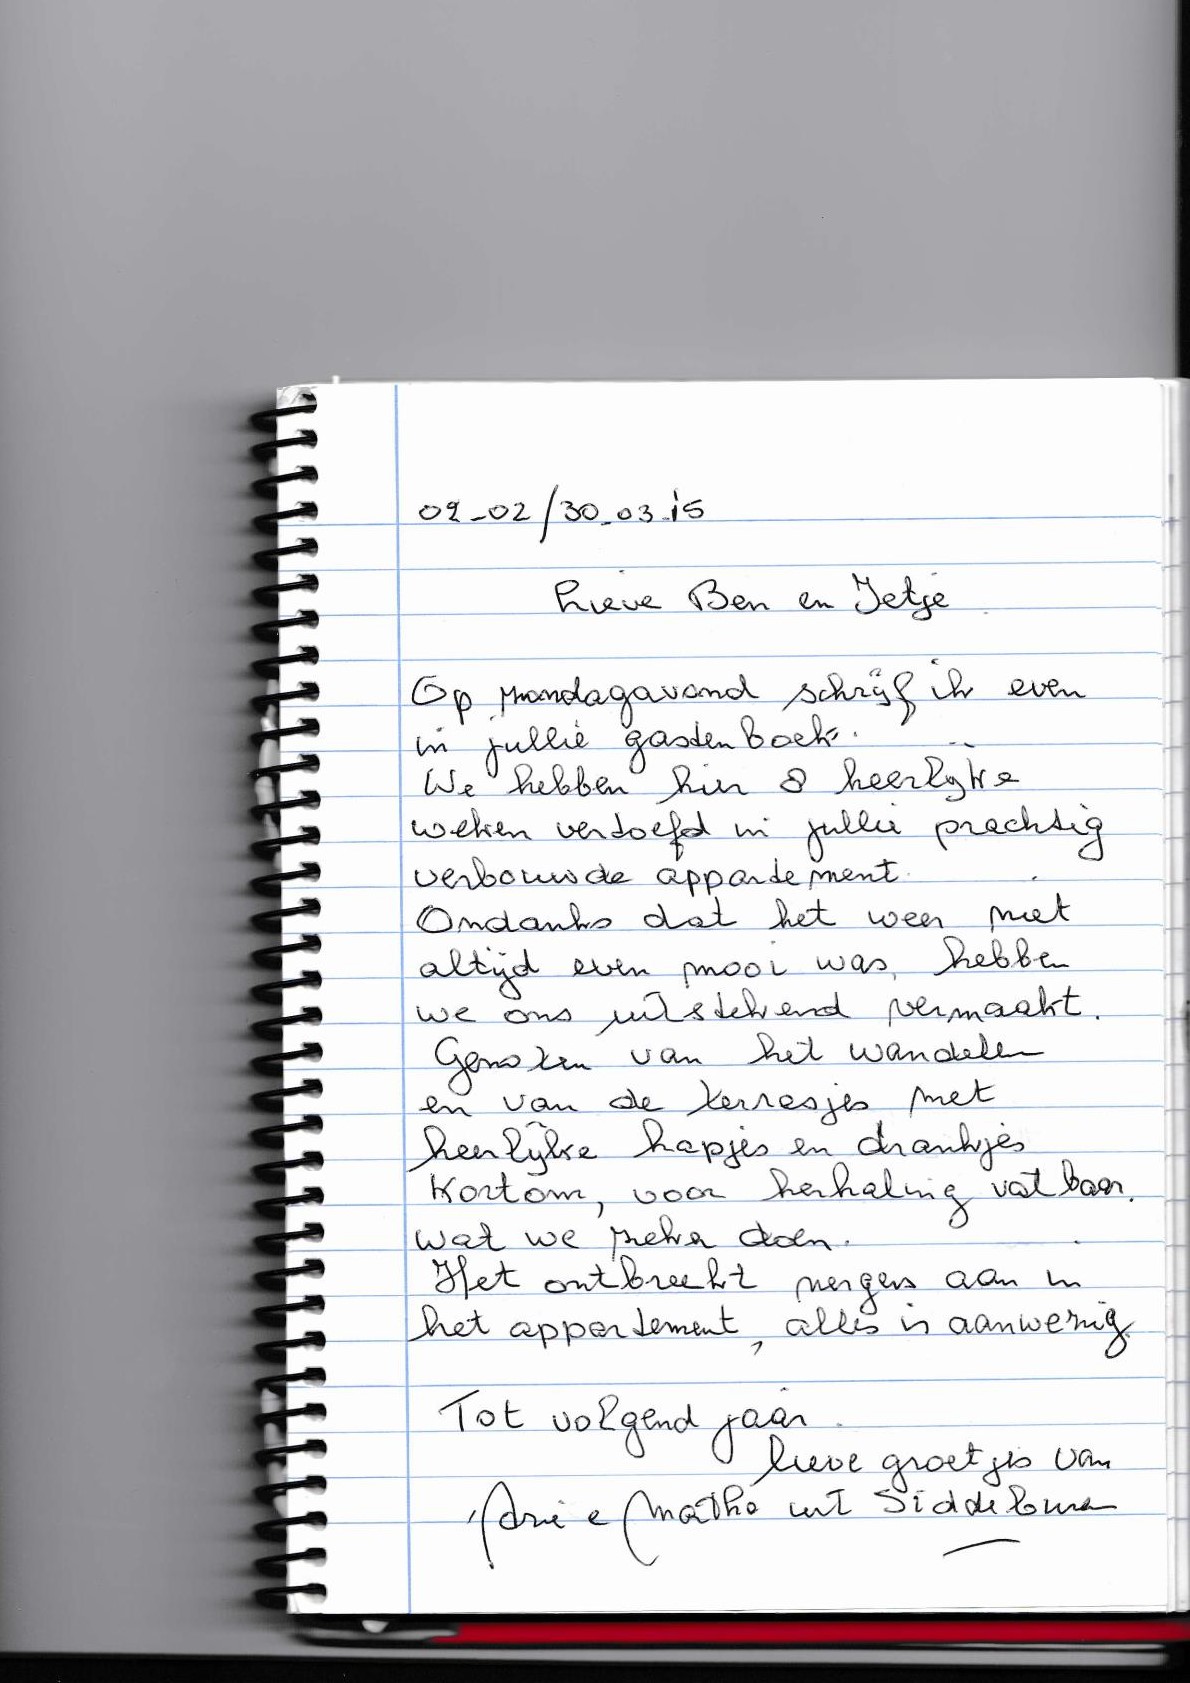 02-02/30-03-15
Lieve Ben en Jetje
Op maandagavond schrijf ik even
in jullie gastenboek.
We hebben hier 8 heerlijke
weken vertoefd in jullie prachtig
verbouwde appartement.
Ondanks dat het weer niet
altijd even mooi was, hebben
we ons uitstekend vermaakt.
Genoten van het wandelen
en van de terrasjes met
heerlijke hapjes en drankjes
Kortom, voor herhaling vatbaar.
wat we zeker doen.
Het ontbreekt nergens aan in
het appartement, alles is aanwezig.
Tot volgend jaar.
lieve groetjes van
Arie e Matha uit Siddeburen